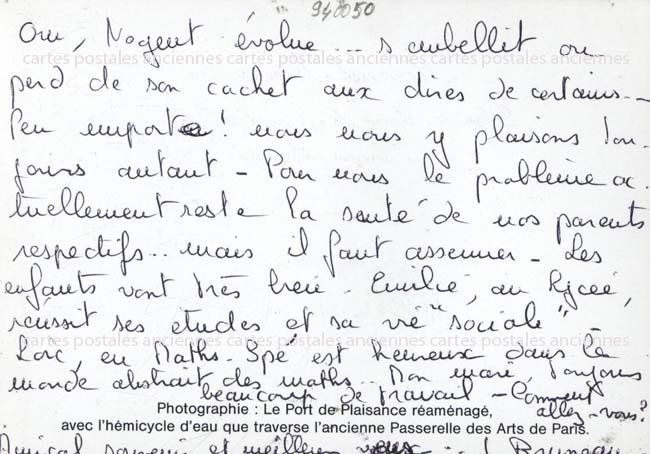 940050
Oui, Nogent évolue... s'embellit ou
cartes postales anciennes cartes postales anciennes cartes postales anciennes
perd de son cachet aux dires de certains -
Peu importe ! nous nous y plaisons tou-
jours autant - Pour nous le problème ac-
tuellement reste la santé de nos parents
respectifs... mais il faut assumer - Les
enfants vont très bien - Emilie, au lycée,
réussit ses études et sa vie "sociale"
cartes postales anciennes cartes postales anciennes cartes postales anciennes
Loïc, en Maths-Spé est heureux dans le
monde abstrait des maths... Mon mari, toujours
beaucoup de travail - Comment
allez-vous?
Photographie : Le Port de Plaisance réaménagé,
avec l'hémicycle d'eau que traverse l'ancienne Passerelle des Arts de Paris.
Amical souvenir et meilleurs vœux